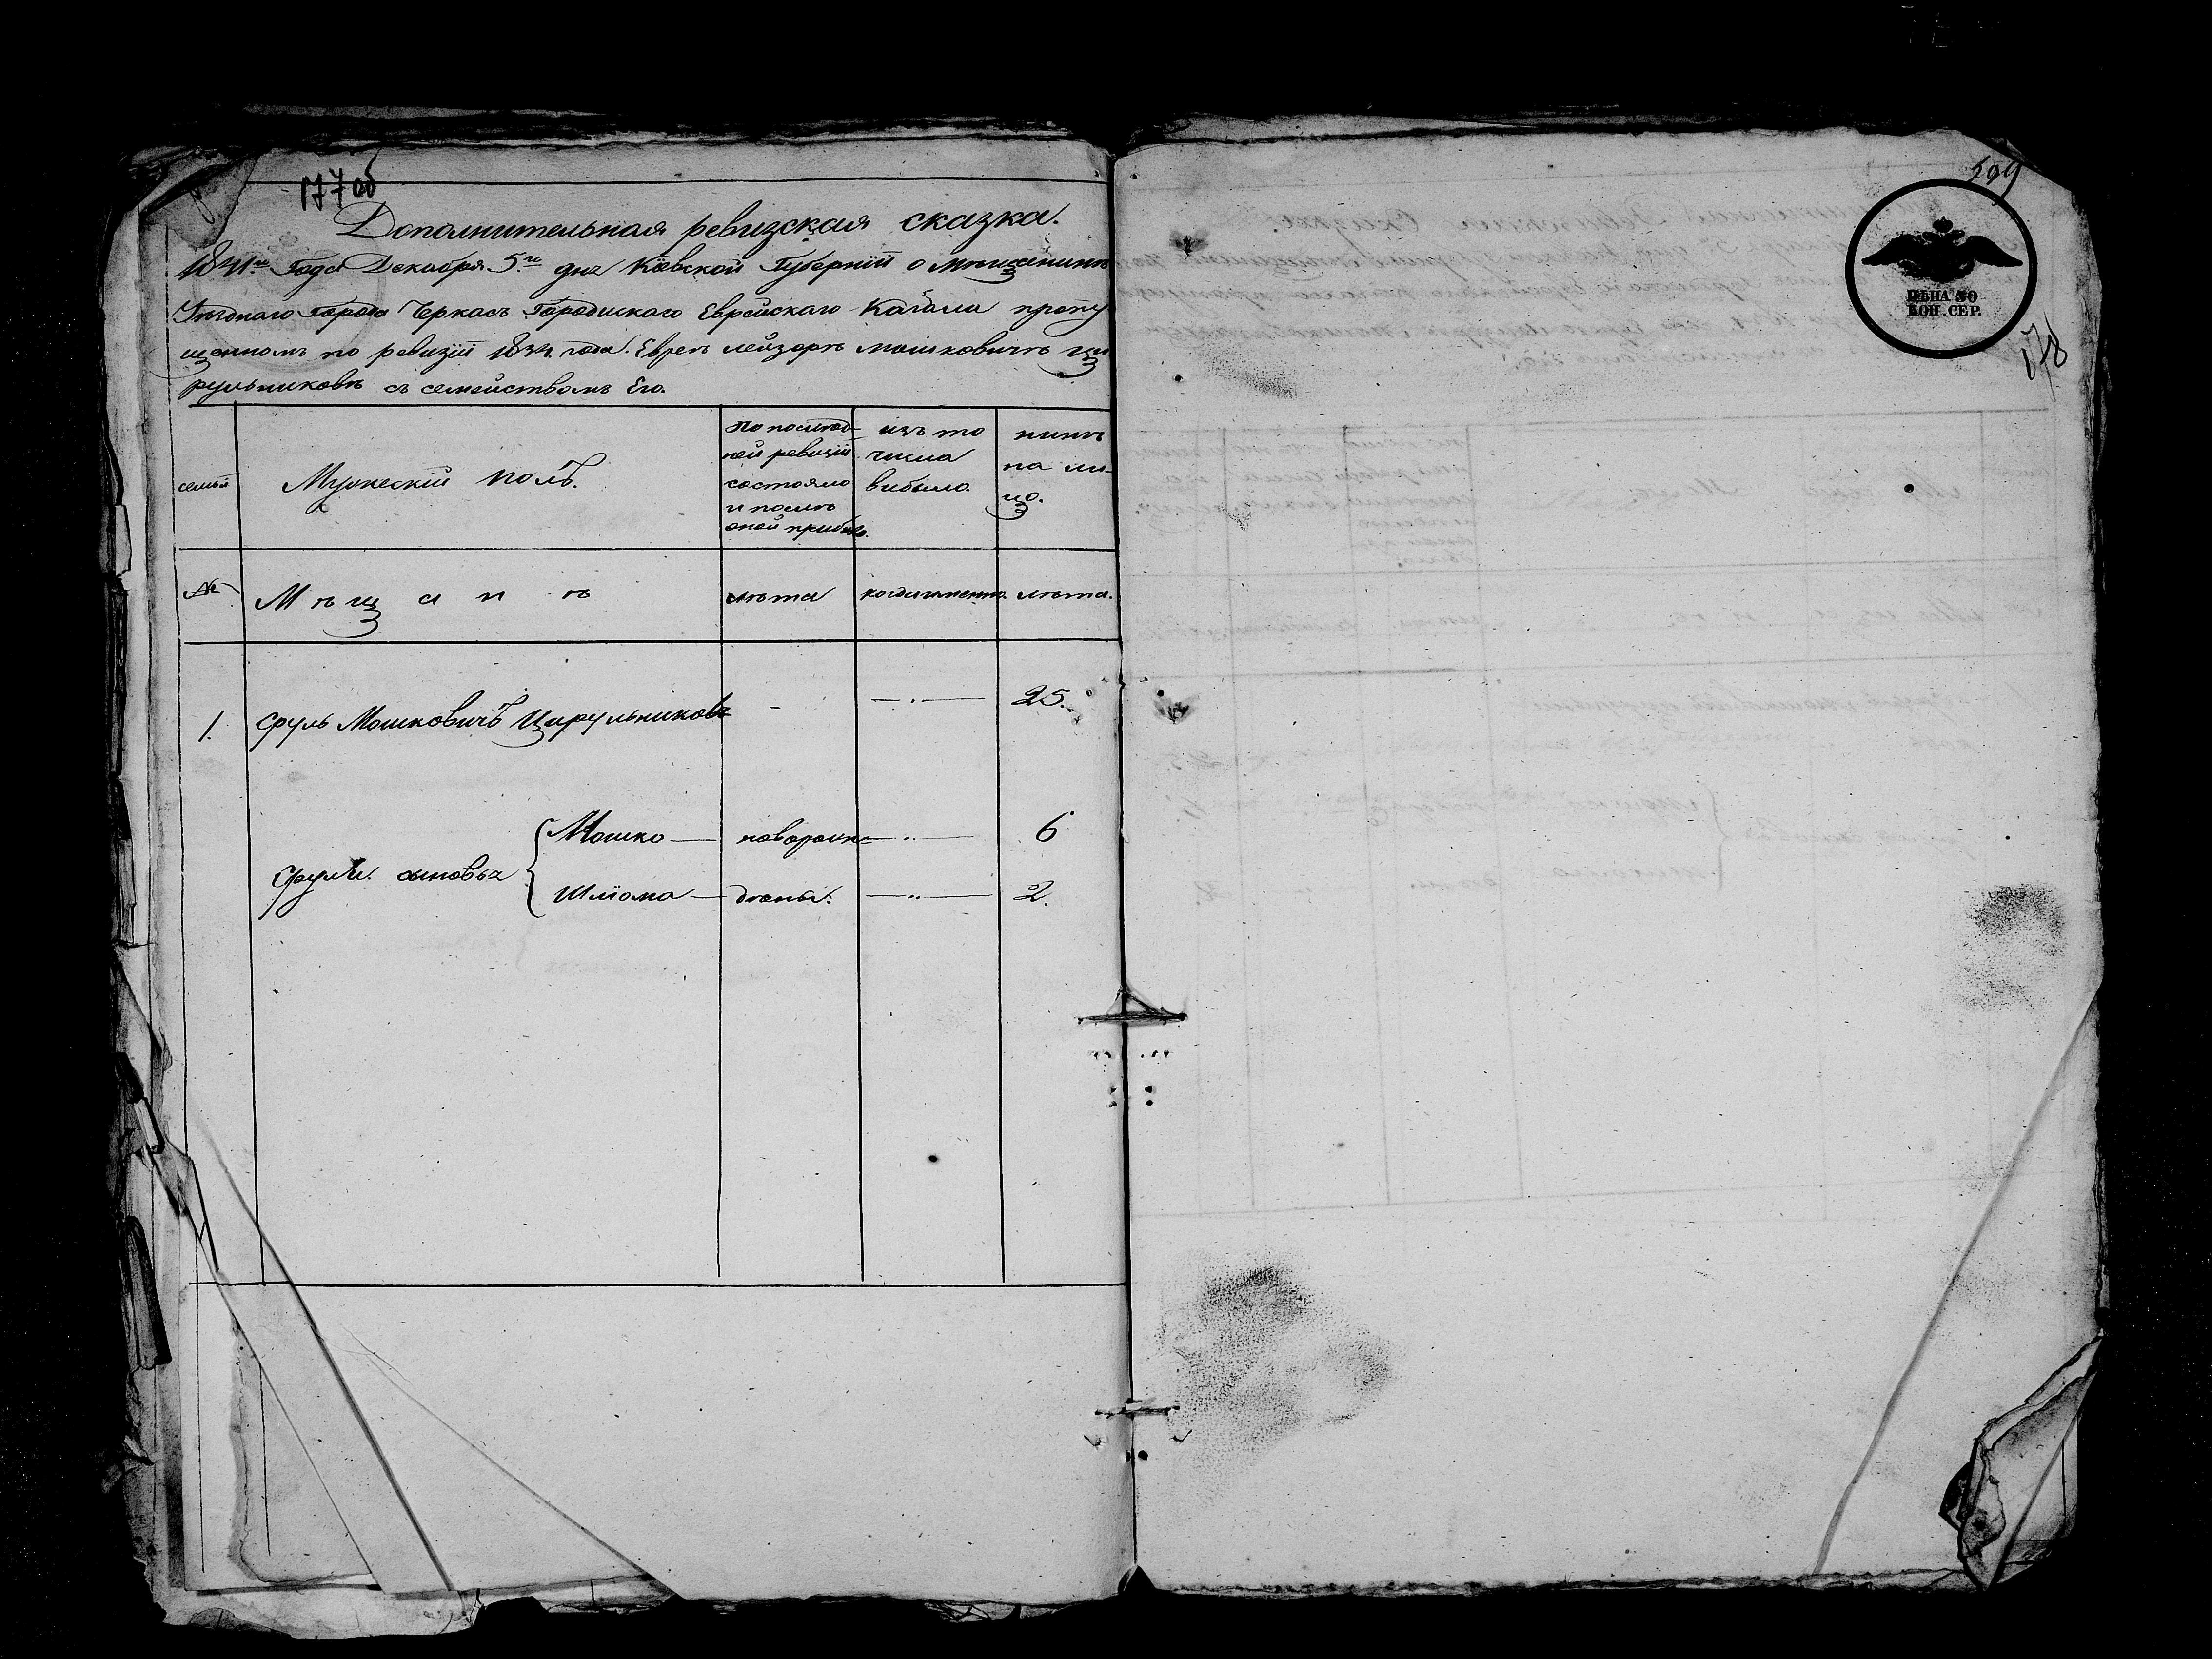 177 об
Дополнительная ревизская сказка.
1841го Года Декабря 5го дня Кіевской Губерніи о мѣщанинѣ
Уѣзднаго города Черкасъ Городискаго Еврейскаго Кагала пропу
щенномъ по ревизіи 1834 года. Евреѣ Лейзорѣ Мошковичѣ Ци
рульниковѣ съ семействомъ Его.
семьи
Мужескій полъ.
По послѣд-
ней ревизіи
состояло
и послѣ
оной прибыло.
изъ то
числа
выбыло.
нинѣ
на ли-
цо.
№
Мѣщанѣ
лѣта
когда именно.
лѣта.
1.
Сруль Мошковичъ Цирульниковъ
-
—.—
25.
Сруля сыновья
Мошко —
новорож-
—..—
6
Шліома —
дѣены.
—..—
2.
299
ЦѢНА 30
КОП. СЕР.
178